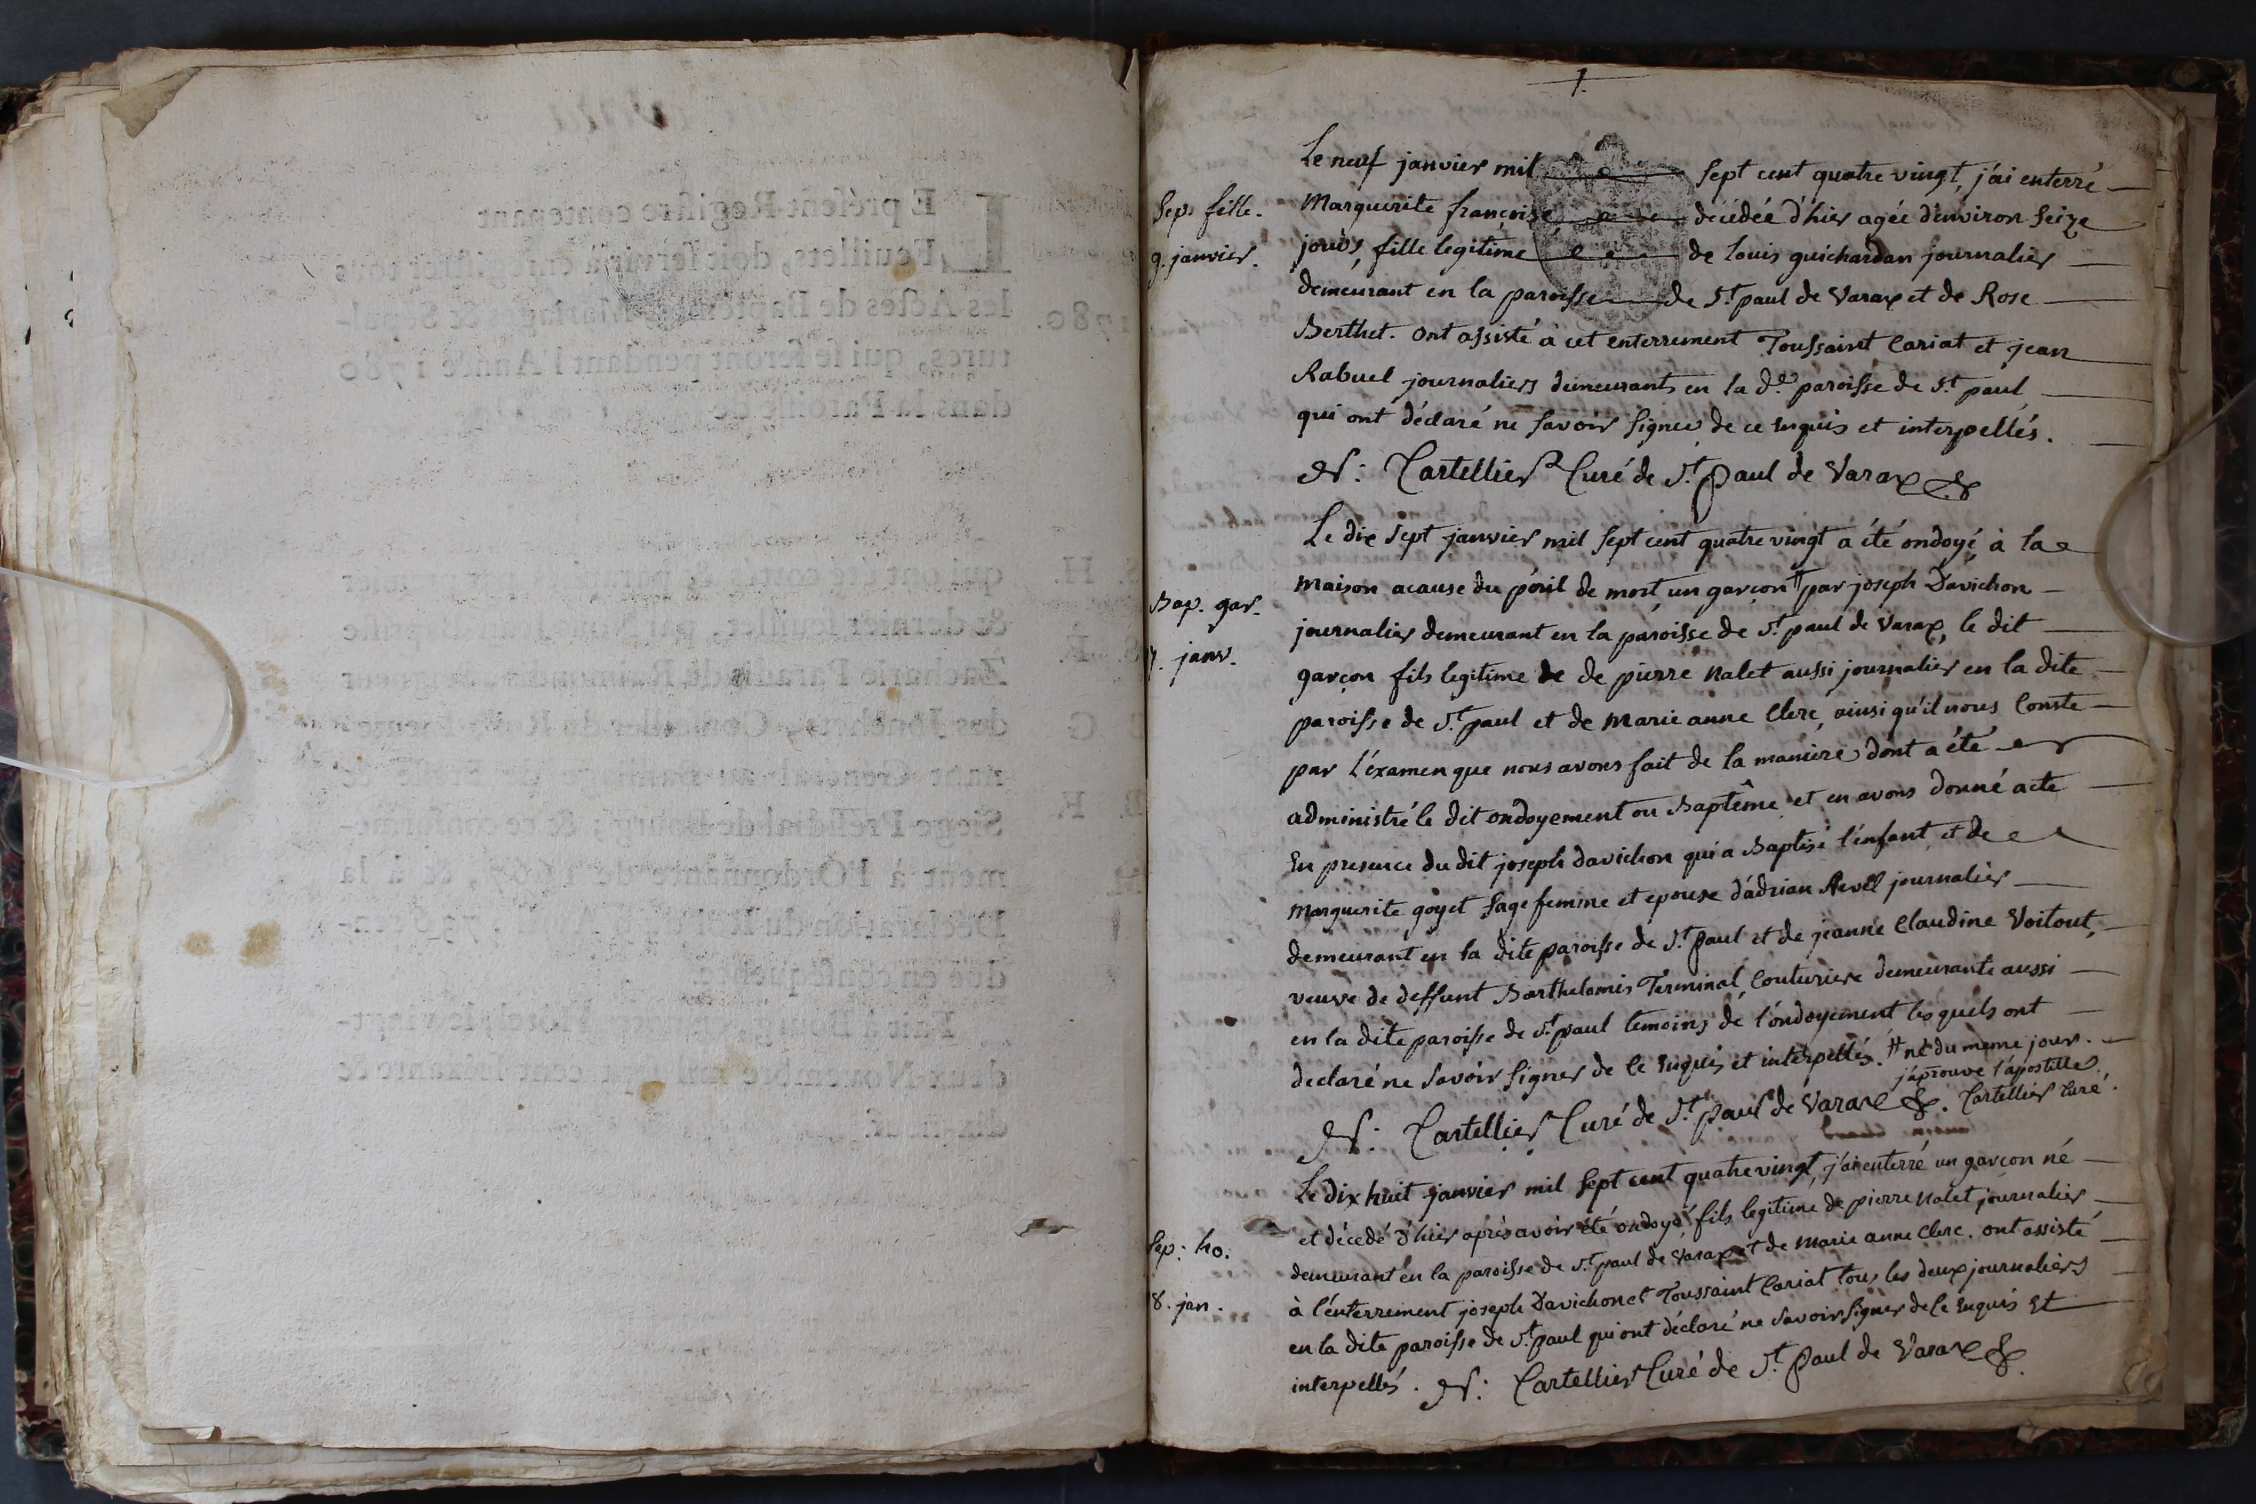 1.
Le neuf janvier mil sept cent quatre vingt, j'ai enterré
Marguerite françoise decédée d'hier agée d'environ seize
jours, fille legitime de louis guichardan journalier
demeurant en la paroisse de St. paul de Varax et de Rose
Berthet. ont assisté à cet enterrement Toussaint Cariat et jean
Rabuel journaliers demeurants en la de. paroisse de St. paul
qui ont déclaré ne savoir signer de ce enquis et interpellés.
Cartellier Curé de St. Paul de Varax
Sep. fille.
9. janvier.
Le dix sept janvier mil sept cent quatre vingt a été ondoyé à la
maison acause du péril de mort, un garçon # par joseph Davichon
journalier demeurant en la paroisse de St. paul de Varax, le dit
garçon fils legitime de de pierre Nalet aussi journalier en la dite
paroisse de St. paul et de marie anne Clerc, ainsi qu'il nous Conste
par l'éxamen que nous avons fait de la maniere dont a été
administré le dit ondoyement ou Baptême et en avons donné acte
En presence du dit joseph davichon qui a Baptisé l'enfant, et de
Marguerite goyet sage femme et epouse d'adrian Revel journalier
demeurant en la dite paroisse de St. Paul et de jeanne Claudine Voitout,
veuve de deffunt Barthelomis Terminal, Couturiere demeurante aussi
en la dite paroisse de St. paul temoins de l'ondoyement les quels ont
declaré ne savoir signer de Ce enquis et interpellés. # né du meme jour.
j'aprouve l'apostille
Cartellier Curé de St. paul de Varax. Cartellier curé.
Bap. gar.
7. janv.
Le dix huit janvier mil sept cent quatre vingt, j'ai enterré un garçon né
et décedé d'hier après avoir été ondoyé, fils legitime de pierre Nalet journalier
demeurant en la paroisse de St. paul de Varax et de Marie anne Clerc. ont assisté
à l'enterrement joseph Davichon et Toussaint Cariat tous les deux journaliers
en la dite paroisse de St. paul qui ont déclaré ne savoir signer de Ce enquis Et
interpellés. Cartellier Curé de St. Paul de Varax
Sep: ho.
8. jan.